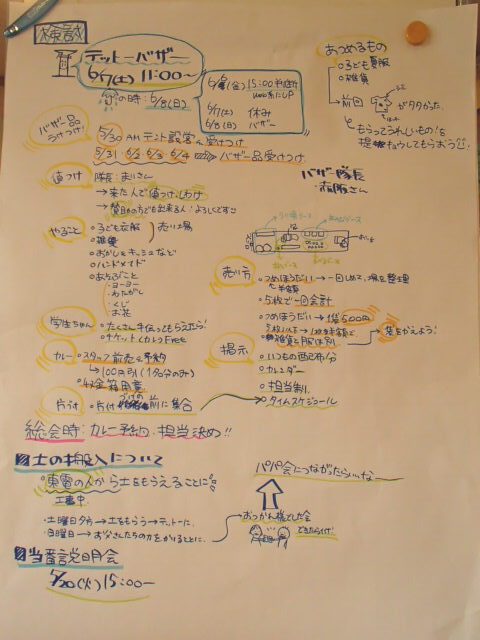 検討
テットーバザー
6/7(土) 11:00〜
の時:6/8(日)
6/7(土) 休み
6/8(日) バザー
あつめるもの
子ども服
雑貨
前回
がタタかった。
もらってうれしいもの を
提キョウしてもらおう
バザー隊長
バザー品
うけつけ
5/30 AM テント設営 & 受けつけ
5/31 6/2 6/3 6/4 バザー品受けつけ
値つけ
隊長:まいさん
→来た人で値つけ、しわけ
やること
子ども衣服
雑貨
売り場
おかし&キッシュなど
ハンドメイド
あそびごと
・ヨーヨー
・わたがし
・くじ
・お茶
売り方
つめほうだい→一回しめて、場を整理
→半額
5枚で一回会計
つめほうだい→1袋500円
雑貨と服は別
→袋をかえよう!
学生ちゃん
たくさん手伝ってもらえたら!
チケット(カレー)Free
カレー
スタッフ前売&予約
→100円引(1名分のみ)
金箱用意
掲示
いつもの配布分
カレンダー
担当制
タイムスケジュール
片づけ
片付 前に集合
総会時:カレー予約、担当決め!!
土の搬入について
東電の人から土をもらえることに
工事中
・土曜日夕方→土をもらう→テットーに。
・日曜日→お父さんたちの力をかりることに、
パパ会につながったらいいなー
おつかれ様でした会
できたらイイ!
当番説明会
5/20(火) 15:00〜